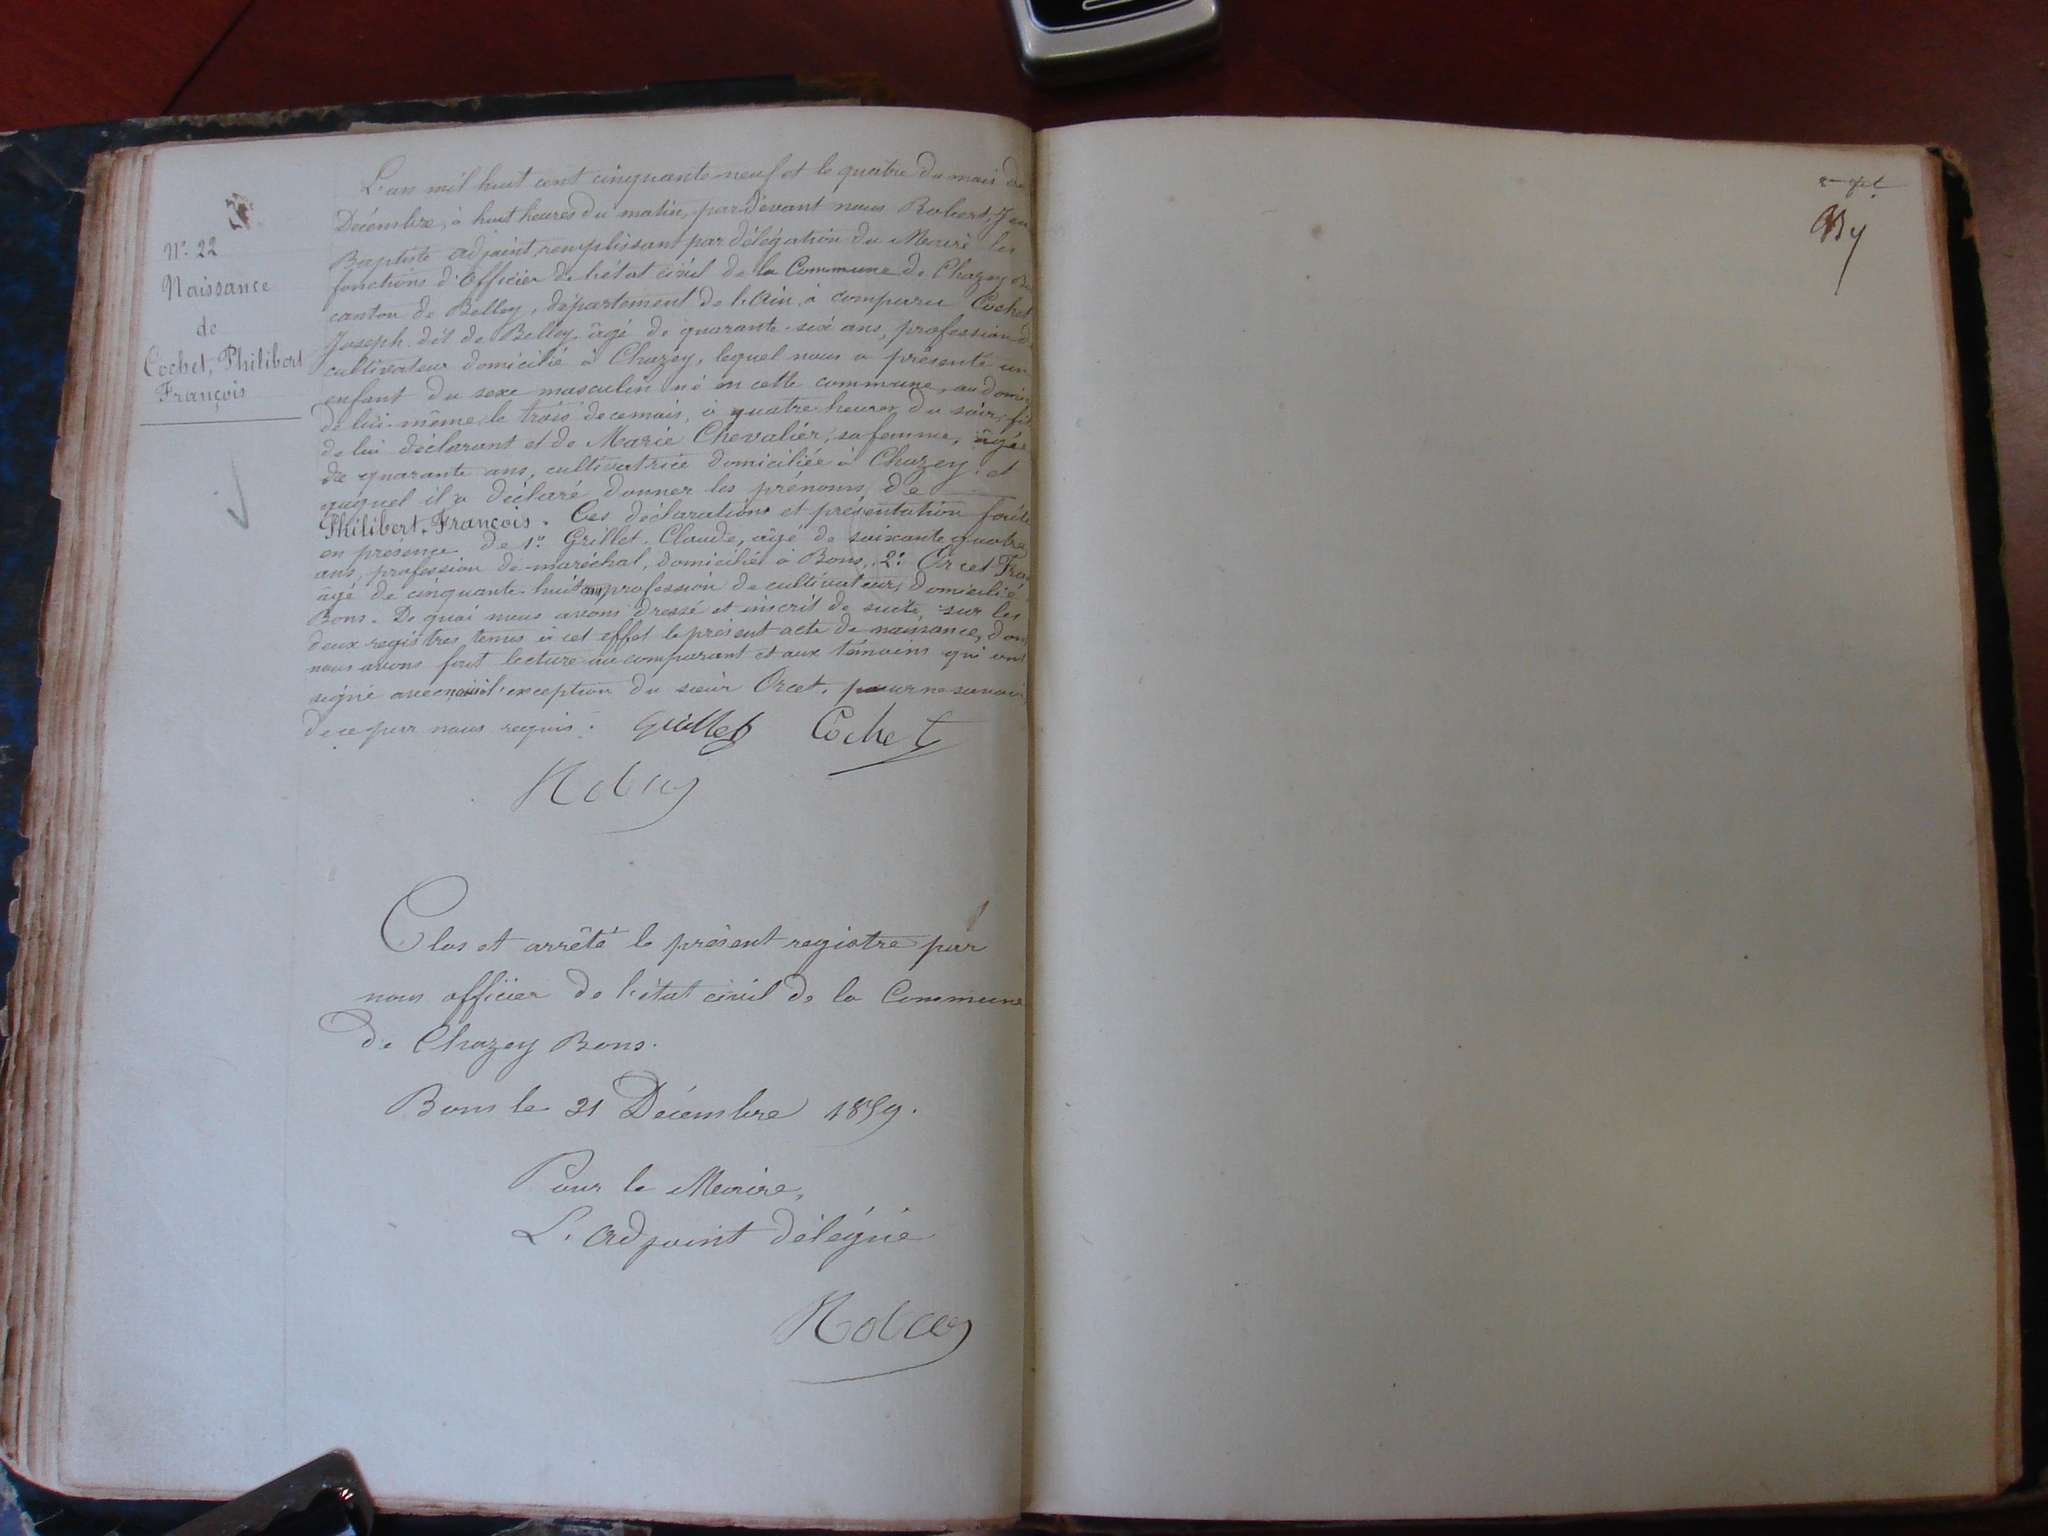 N° 22
Naissance
de
Cochet, Philibert
François
L'an mil huit cent cinquante-neuf et le quatre du mois de
Décembre, à huit heures du matin, pardevant nous Robert, Jean
Baptiste adjoint, remplissant par délégation du Maire les
fonctions d'Officier de l'état civil de la Commune de Chazey Bo
canton de Belley, département de l'Ain, a comparu Cochet
Joseph dit de Belley, âgé de quarante-six ans, profession d
cultivateur domicilié à Chazey, lequel nous a présenté un
enfant du sexe masculin né en cette commune, au domi
de lui-même, le trois de ce mois, à quatre heures du soir, fil
de lui déclarant et de Marie Chevalier, sa femme, âgée
de quarante ans, cultivatrice domiciliée à Chazey, et
auquel il a déclaré donner les prénoms de
Philibert-François. Ces déclarations et présentation faites
en présence de 1° Grillet, Claude, âgé de soixante quatre
ans, profession de maréchal, domicilié à Bons, 2° Orcet Fra
âgé de cinquante-huit ans profession de cultivateur, domicilié
Bons. De quoi nous avons dressé et inscrit de suite sur les
deux registres tenus à cet effet le présent acte de naissance, don
nous avons fait lecture au comparant et aux témoins qui ont
signé avec nous à l'exception du sieur Orcet, pour ne savoir
de ce par nous requis.
Grillet Cochet
Robert
Clos et arrêté le présent registre par
nous officier de l'état civil de la Commune
de Chazey Bons.
Bons le 31 Décembre 1859.
Pour le Maire,
L'adjoint délégué
Robert